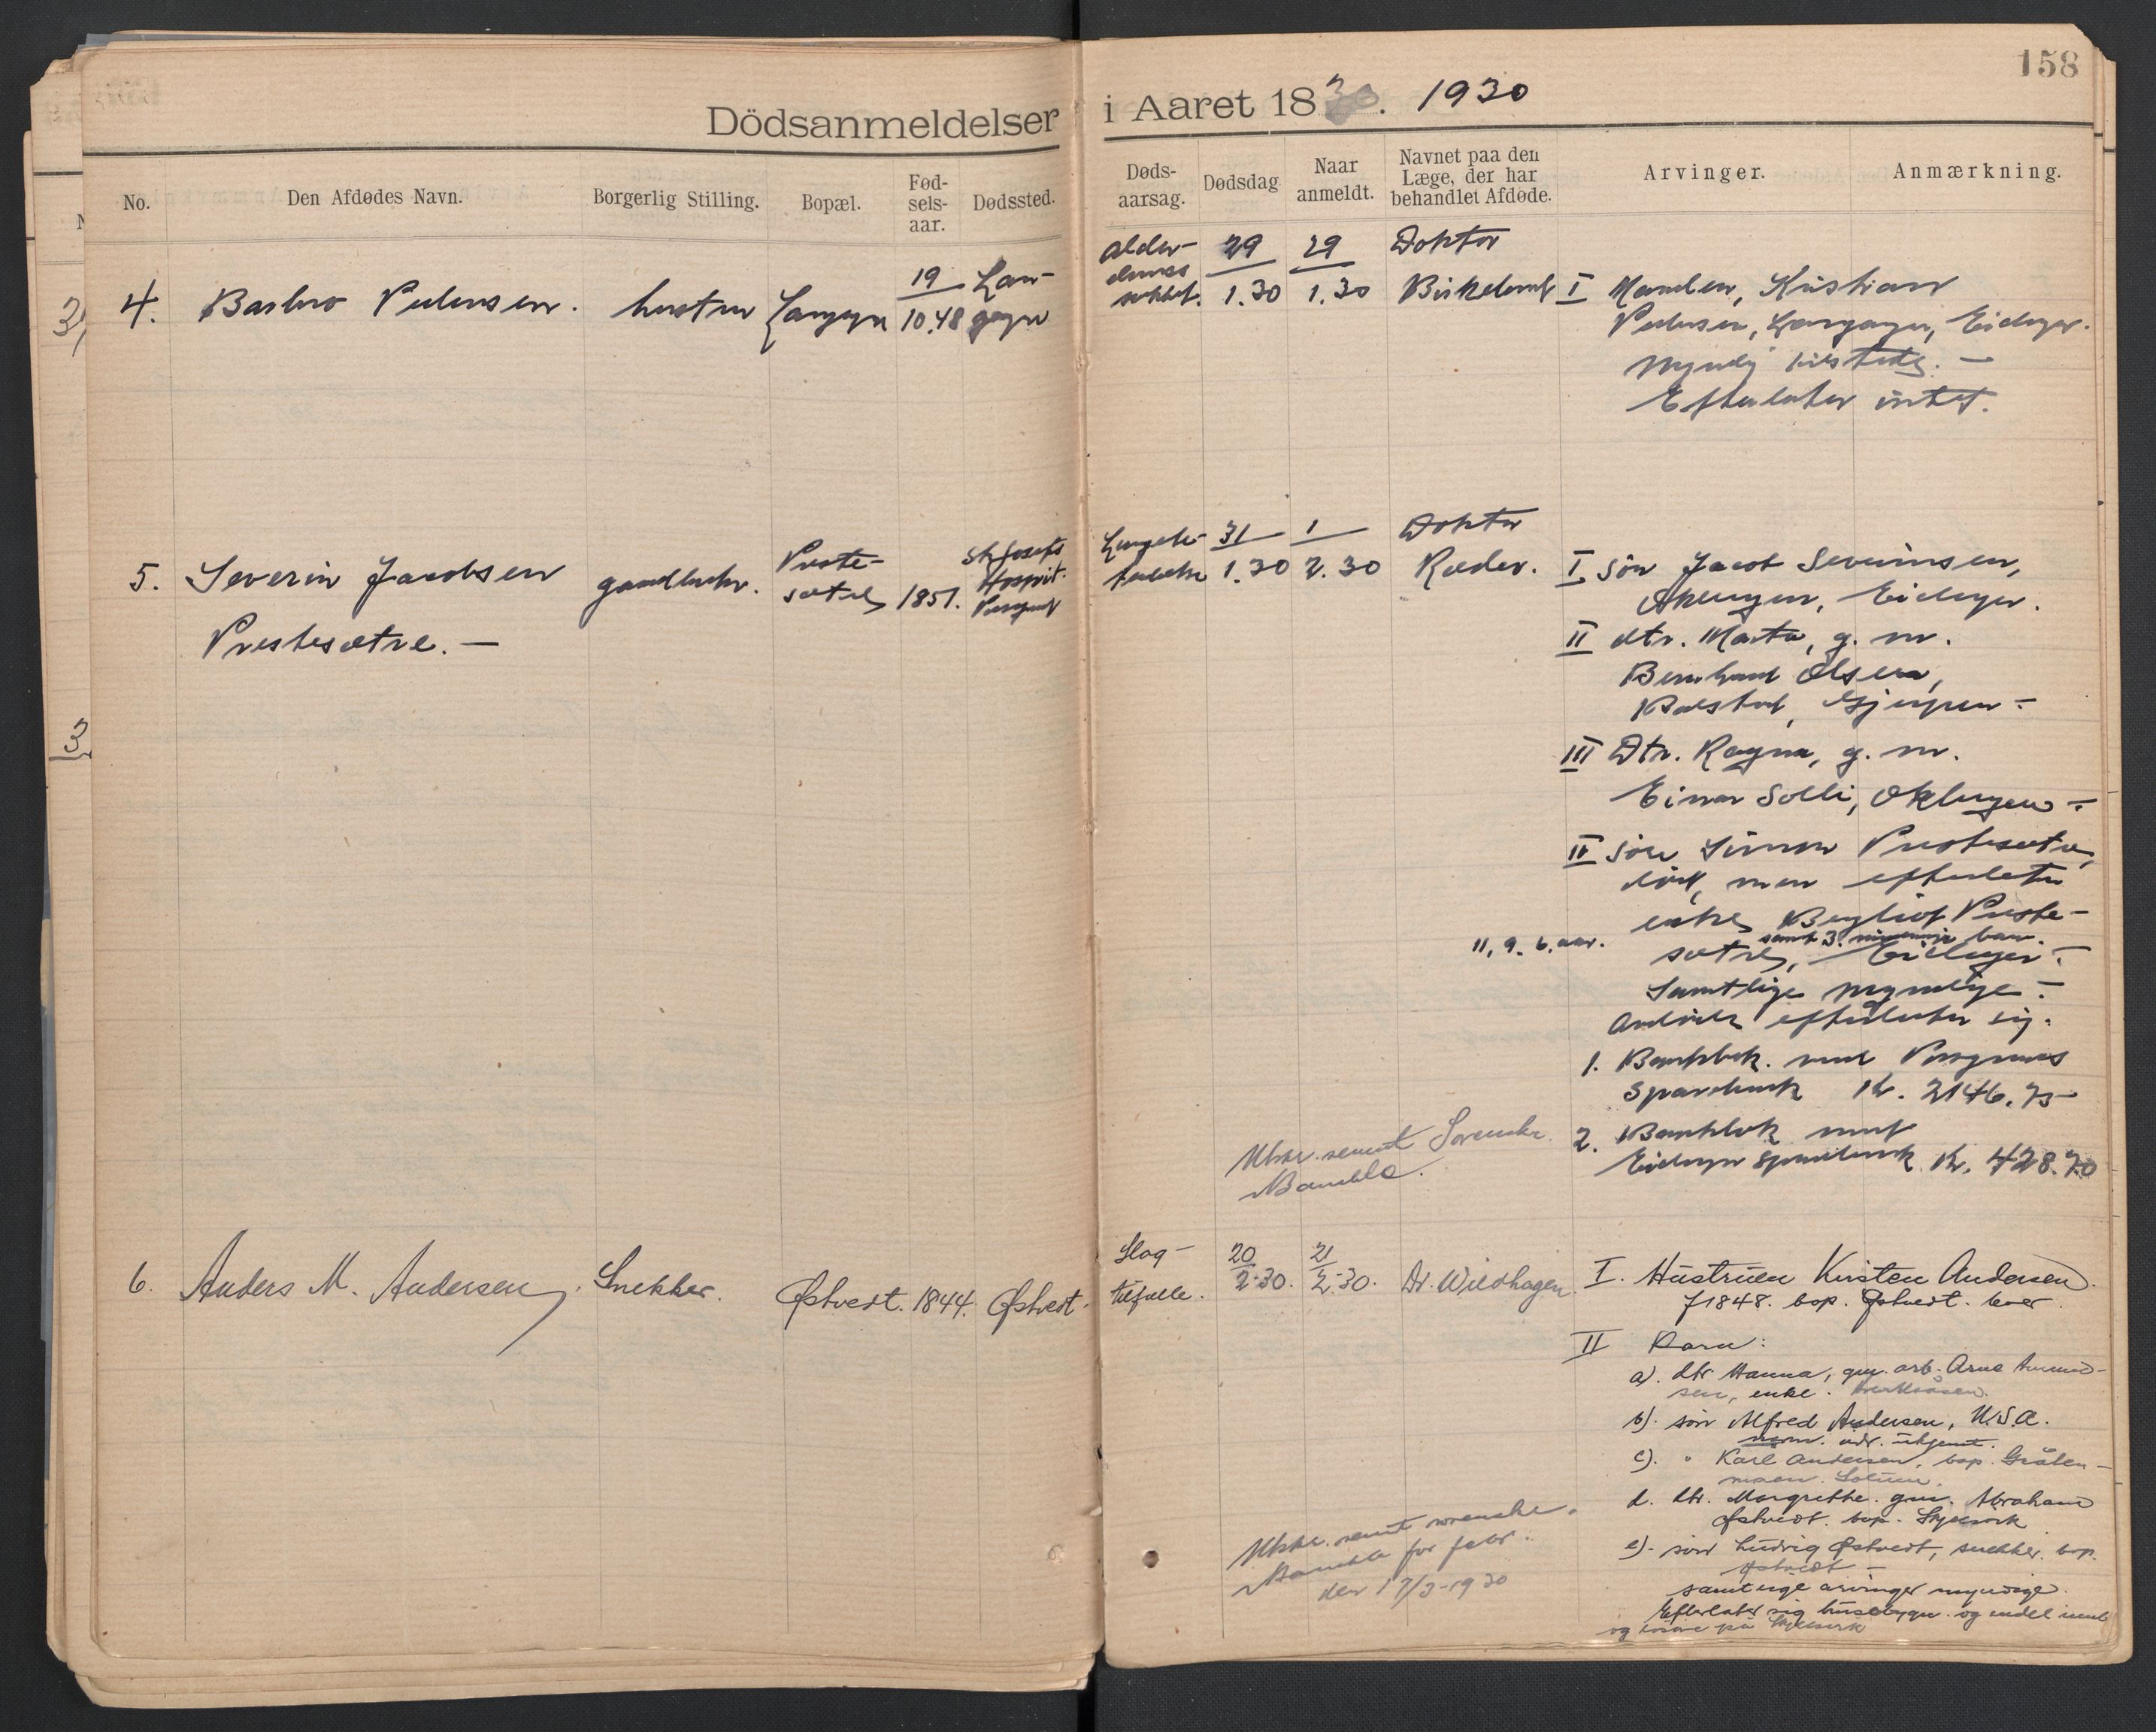 158
Dödsanmeldelser i Aaret 18 . 1930
No.
Den Afdødes Navn.
Borgerlig Stilling.
Bopæl.
Fød-
sels-
aar.
Dødssted.
Døds-
aarsag.
Dødsdag
Naar
anmeldt.
Navnet paa den
Læge, der har
behandlet Afdøde.
Arvinger.
Anmærkning.
4.
Barbro Pedersen.
hustru
Langøya
19
10.48
Lan-
gøya
Alder-
doms
svakhet.
29
1.30
29
1.30
Doktor
Birkelund
I Manden, Kristian
Pedersen, Langøya, Eidanger.
Myndig tilstede. —
Efterlater intet.
5.
Severin Jacobsen
Prestesætre. —
gaardbruker.
Preste-
sætre
1851.
St. Josefs
Hospit.
Porsgrund
Lungebe-
tendelse
31
1.30
1
2.30
Doktor
Ræder.
I Søn Jacob Severinsen,
Oklungen, Eidanger.
II dtr. Marta, g. m.
Bernhard Olsen,
Gjerpen -
III Dtr. Ragna, g. m.
Einar Solli, Oklungen -
II Søn Simon Prestesætre,
død, men efterlater
enke Bergliot Preste-
samt 3. barn.
11, 9. 6. aar.
sætre, Eidanger -
Samtlige myndige -
Avdøde efterlater sig.
1. Bankbok. med Porsgrunds
Sparebank Kr. 2146.75
2. Bankbok med
Eidanger Sparebank Kr. 428.70
Utskr. sendt Sorenskr.
Bamble.
6.
Anders M. Andersen.
Snekker.
Østvedt.
1844.
Østvedt.
Slag-
tilfælle.
20
2-30.
21
2-30.
Dr. Wildhagen.
I. Hustruen Kirsten Andersen.
f 1848. bop. Østvedt. lever.
II Barn:
a). dtr. Hanna, gm. arb. Arne Amund-
sen, enke.
b). søn Alfred Andersen, U.S.A.
nærm. adr. ukjent.
c). " Karl Andersen, bop. Gråten-
moen. Solum.
d. dtr. Margrethe gm. Abraham
Østvedt. bop.
e). søn Ludvig Østvedt, snekker. bop.
Østvedt —
samtlige arvinger myndige.
Efterlater sig husebygn. og endel innb
og løsøre på
Utskr. sendt sorenskr.
Bamble for febr.
den 17/3-1930